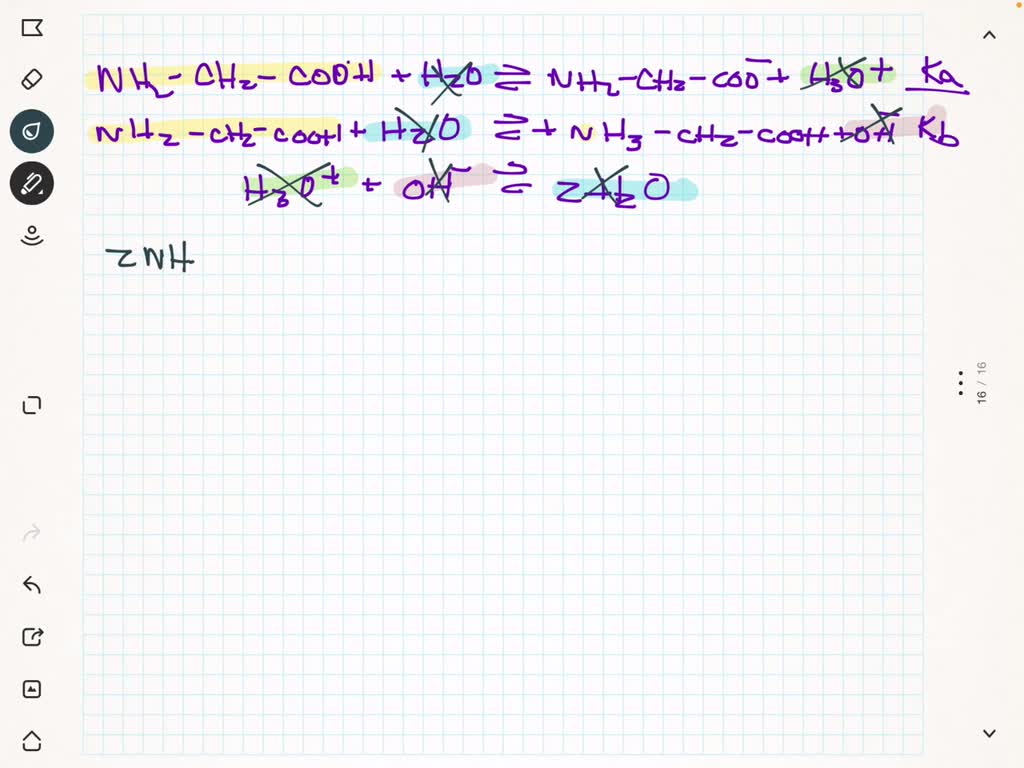 NH₂-CH₂-COOH + H₂O ⇌ NH₂-CH₂-COO⁻ + H₃O⁺ Ka
NH₂-CH₂-COOH + H₂O ⇌ +NH₃-CH₂-COOH + OH⁻ Kb
H₃O⁺ + OH⁻ ⇌ 2H₂O
2NH
16 / 16